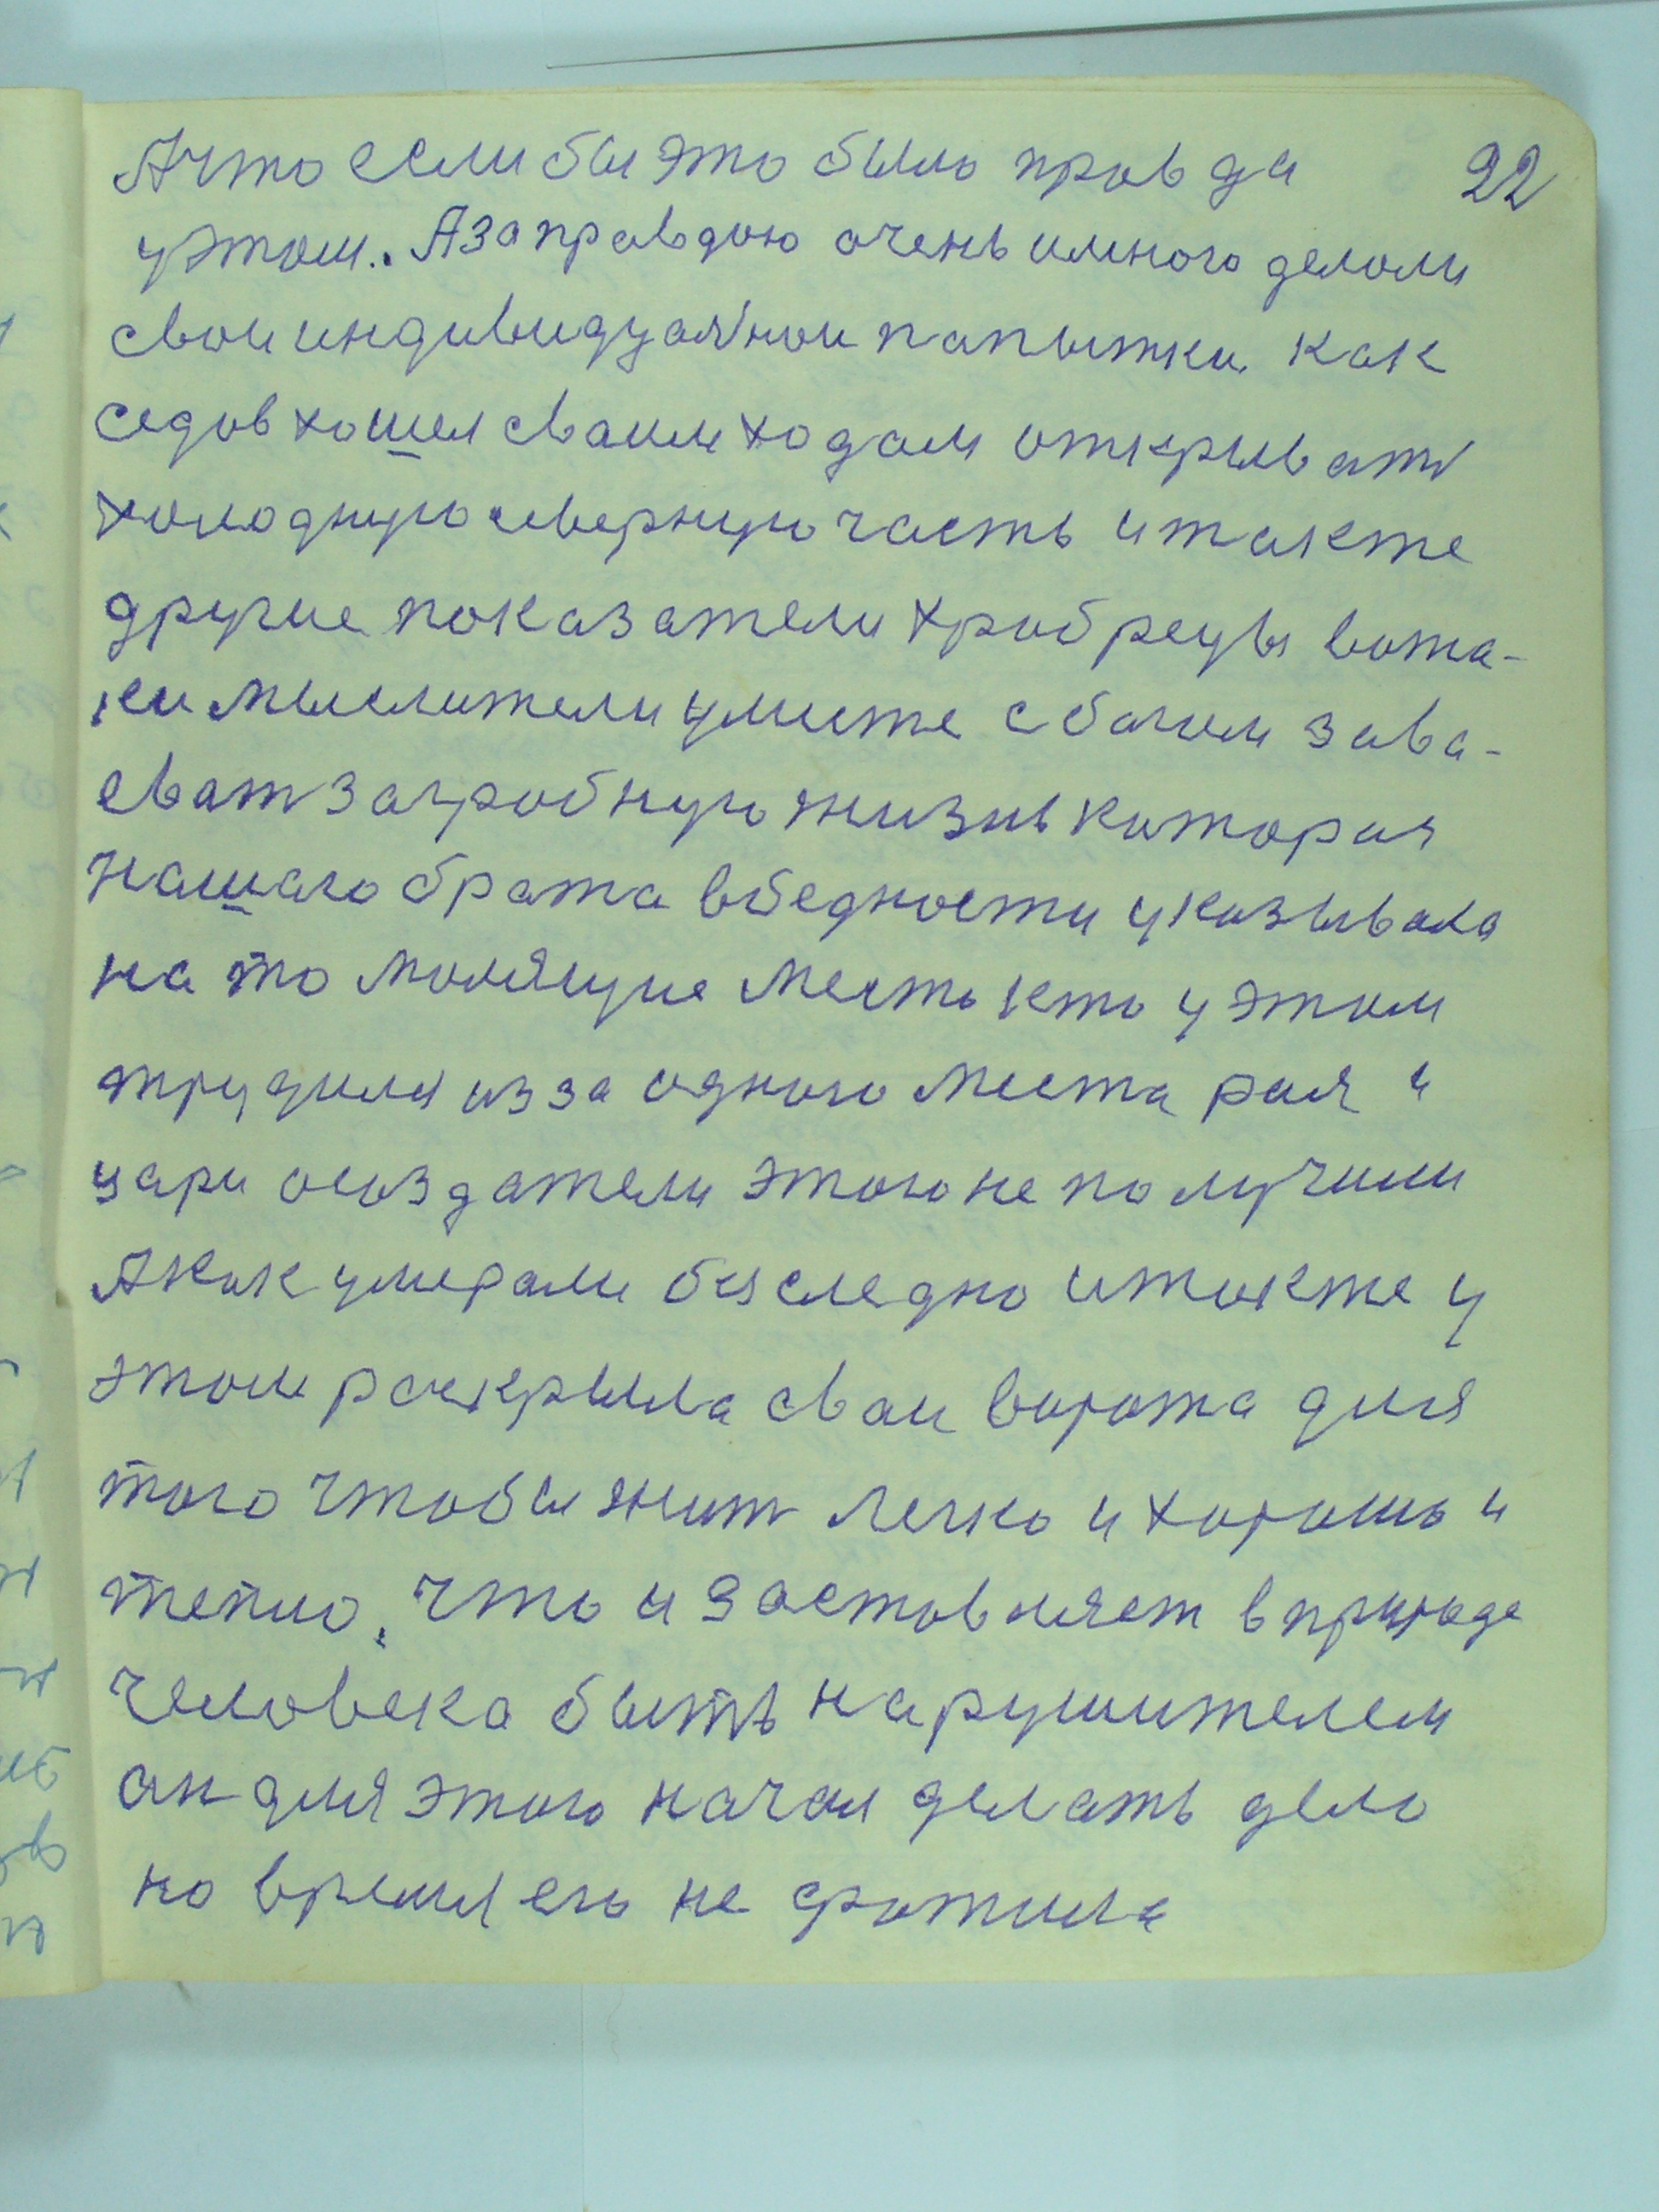 А что если бы это было правда 22
у этом.. А за правдою очень много делали
свои индивидуальнои папытки как
седов хошел своим ходам открывать
холодную северную часть и такте
другие показатели храбрецы вота-
ки мыслители умисте с богам зава-
еват загробную жизнь которая
нашаго брата в бедности указывала
на то молящие место кто у этом
трудился из за одного места рая и
цари создатели этого не получили
А как умерали безследно и такте у
этом раскрыла сваи ворота для
того чтобы жит легко и хорошо и
тепло, что и заставляет в природе
человека быть нарушителем
ан для этого начал делать дело
но время его не фатила